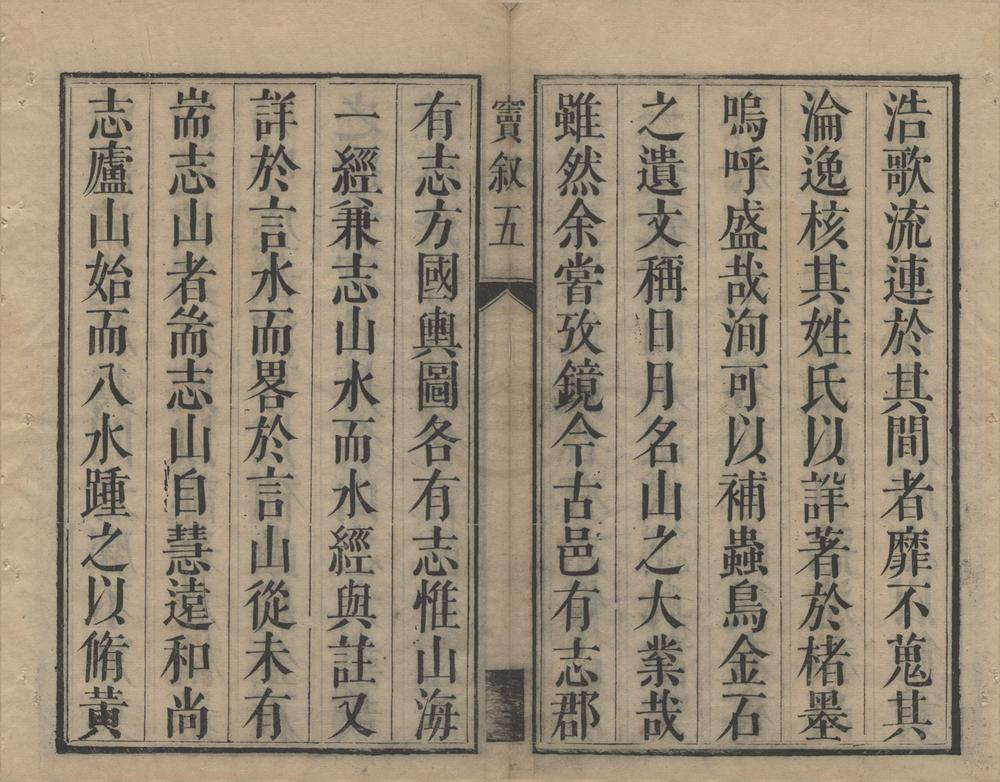 浩歌流連於其間者靡不蒐其
淪逸核其姓氏以詳著於楮墨
嗚呼盛哉洵可以補蟲鳥金石
之遺文稱日月名山之大業哉
雖然余嘗攷鏡今古邑有志郡
竇叙五
有志方國輿圖各有志惟山海
一經兼志山水而水經與註又
詳於言水而畧於言山從未有
耑志山者耑志山自慧遠和尚
志廬山始而八水踵之以脩黃